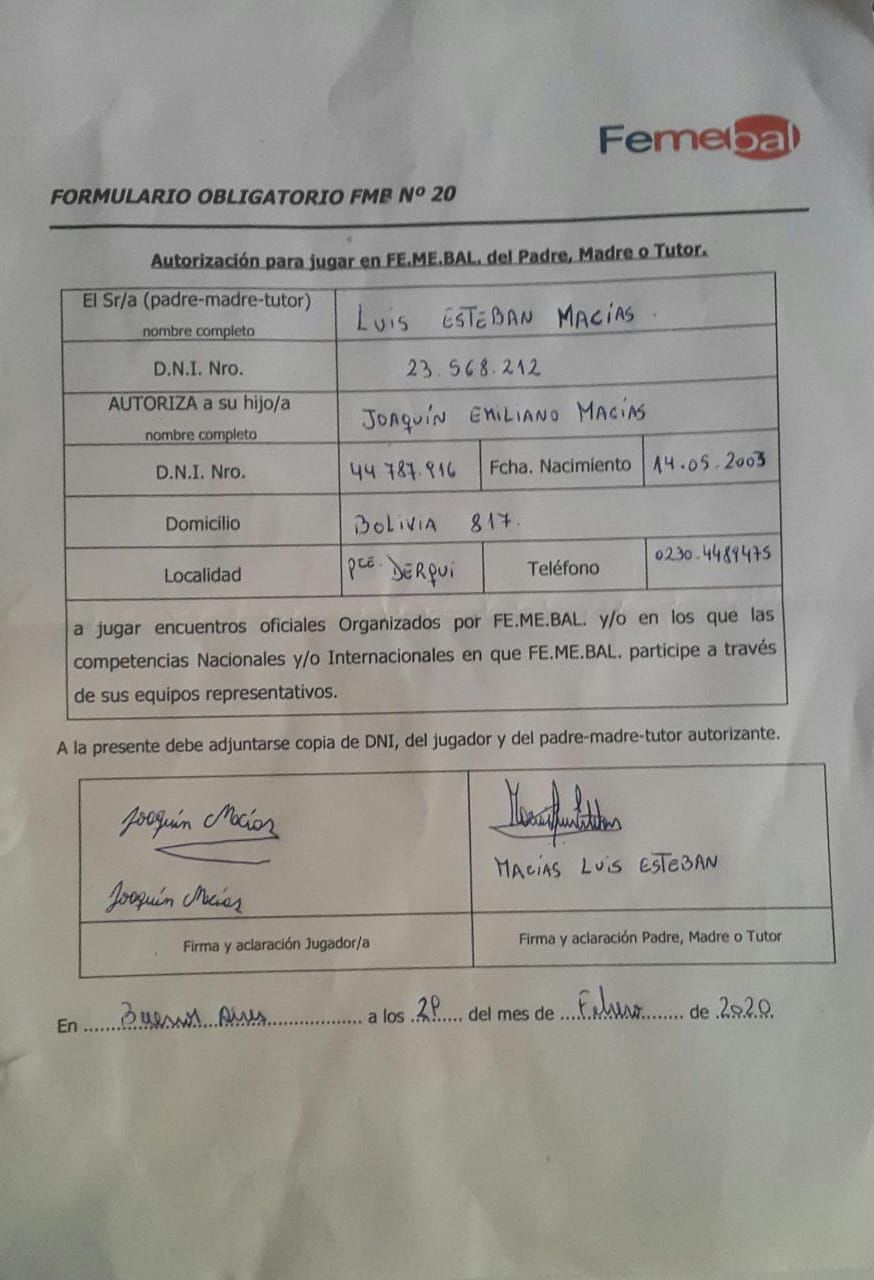 Femebal
FORMULARIO OBLIGATORIO FMB Nº 20
Autorización para jugar en FE.ME.BAL. del Padre, Madre o Tutor.
El Sr/a (padre-madre-tutor)
nombre completo
LUIS ESTEBAN MACÍAS.
D.N.I. Nro.
23.568.212
AUTORIZA a su hijo/a
nombre completo
JOAQUÍN EMILIANO MACÍAS
D.N.I. Nro.
44 787.916
Fcha. Nacimiento
14.05.2003
Domicilio
BOLIVIA 817.
Localidad
Pte. DERQUI
Teléfono
0230-4489475
a jugar encuentros oficiales Organizados por FE.ME.BAL. y/o en los que las
competencias Nacionales y/o Internacionales en que FE.ME.BAL. participe a través
de sus equipos representativos.
A la presente debe adjuntarse copia de DNI, del jugador y del padre-madre-tutor autorizante.
Joaquín Macías
Joaquín Macías
MACÍAS LUIS ESTEBAN
Firma y aclaración Jugador/a
Firma y aclaración Padre, Madre o Tutor
En Buenos Aires a los del mes de Febrero de 2020.